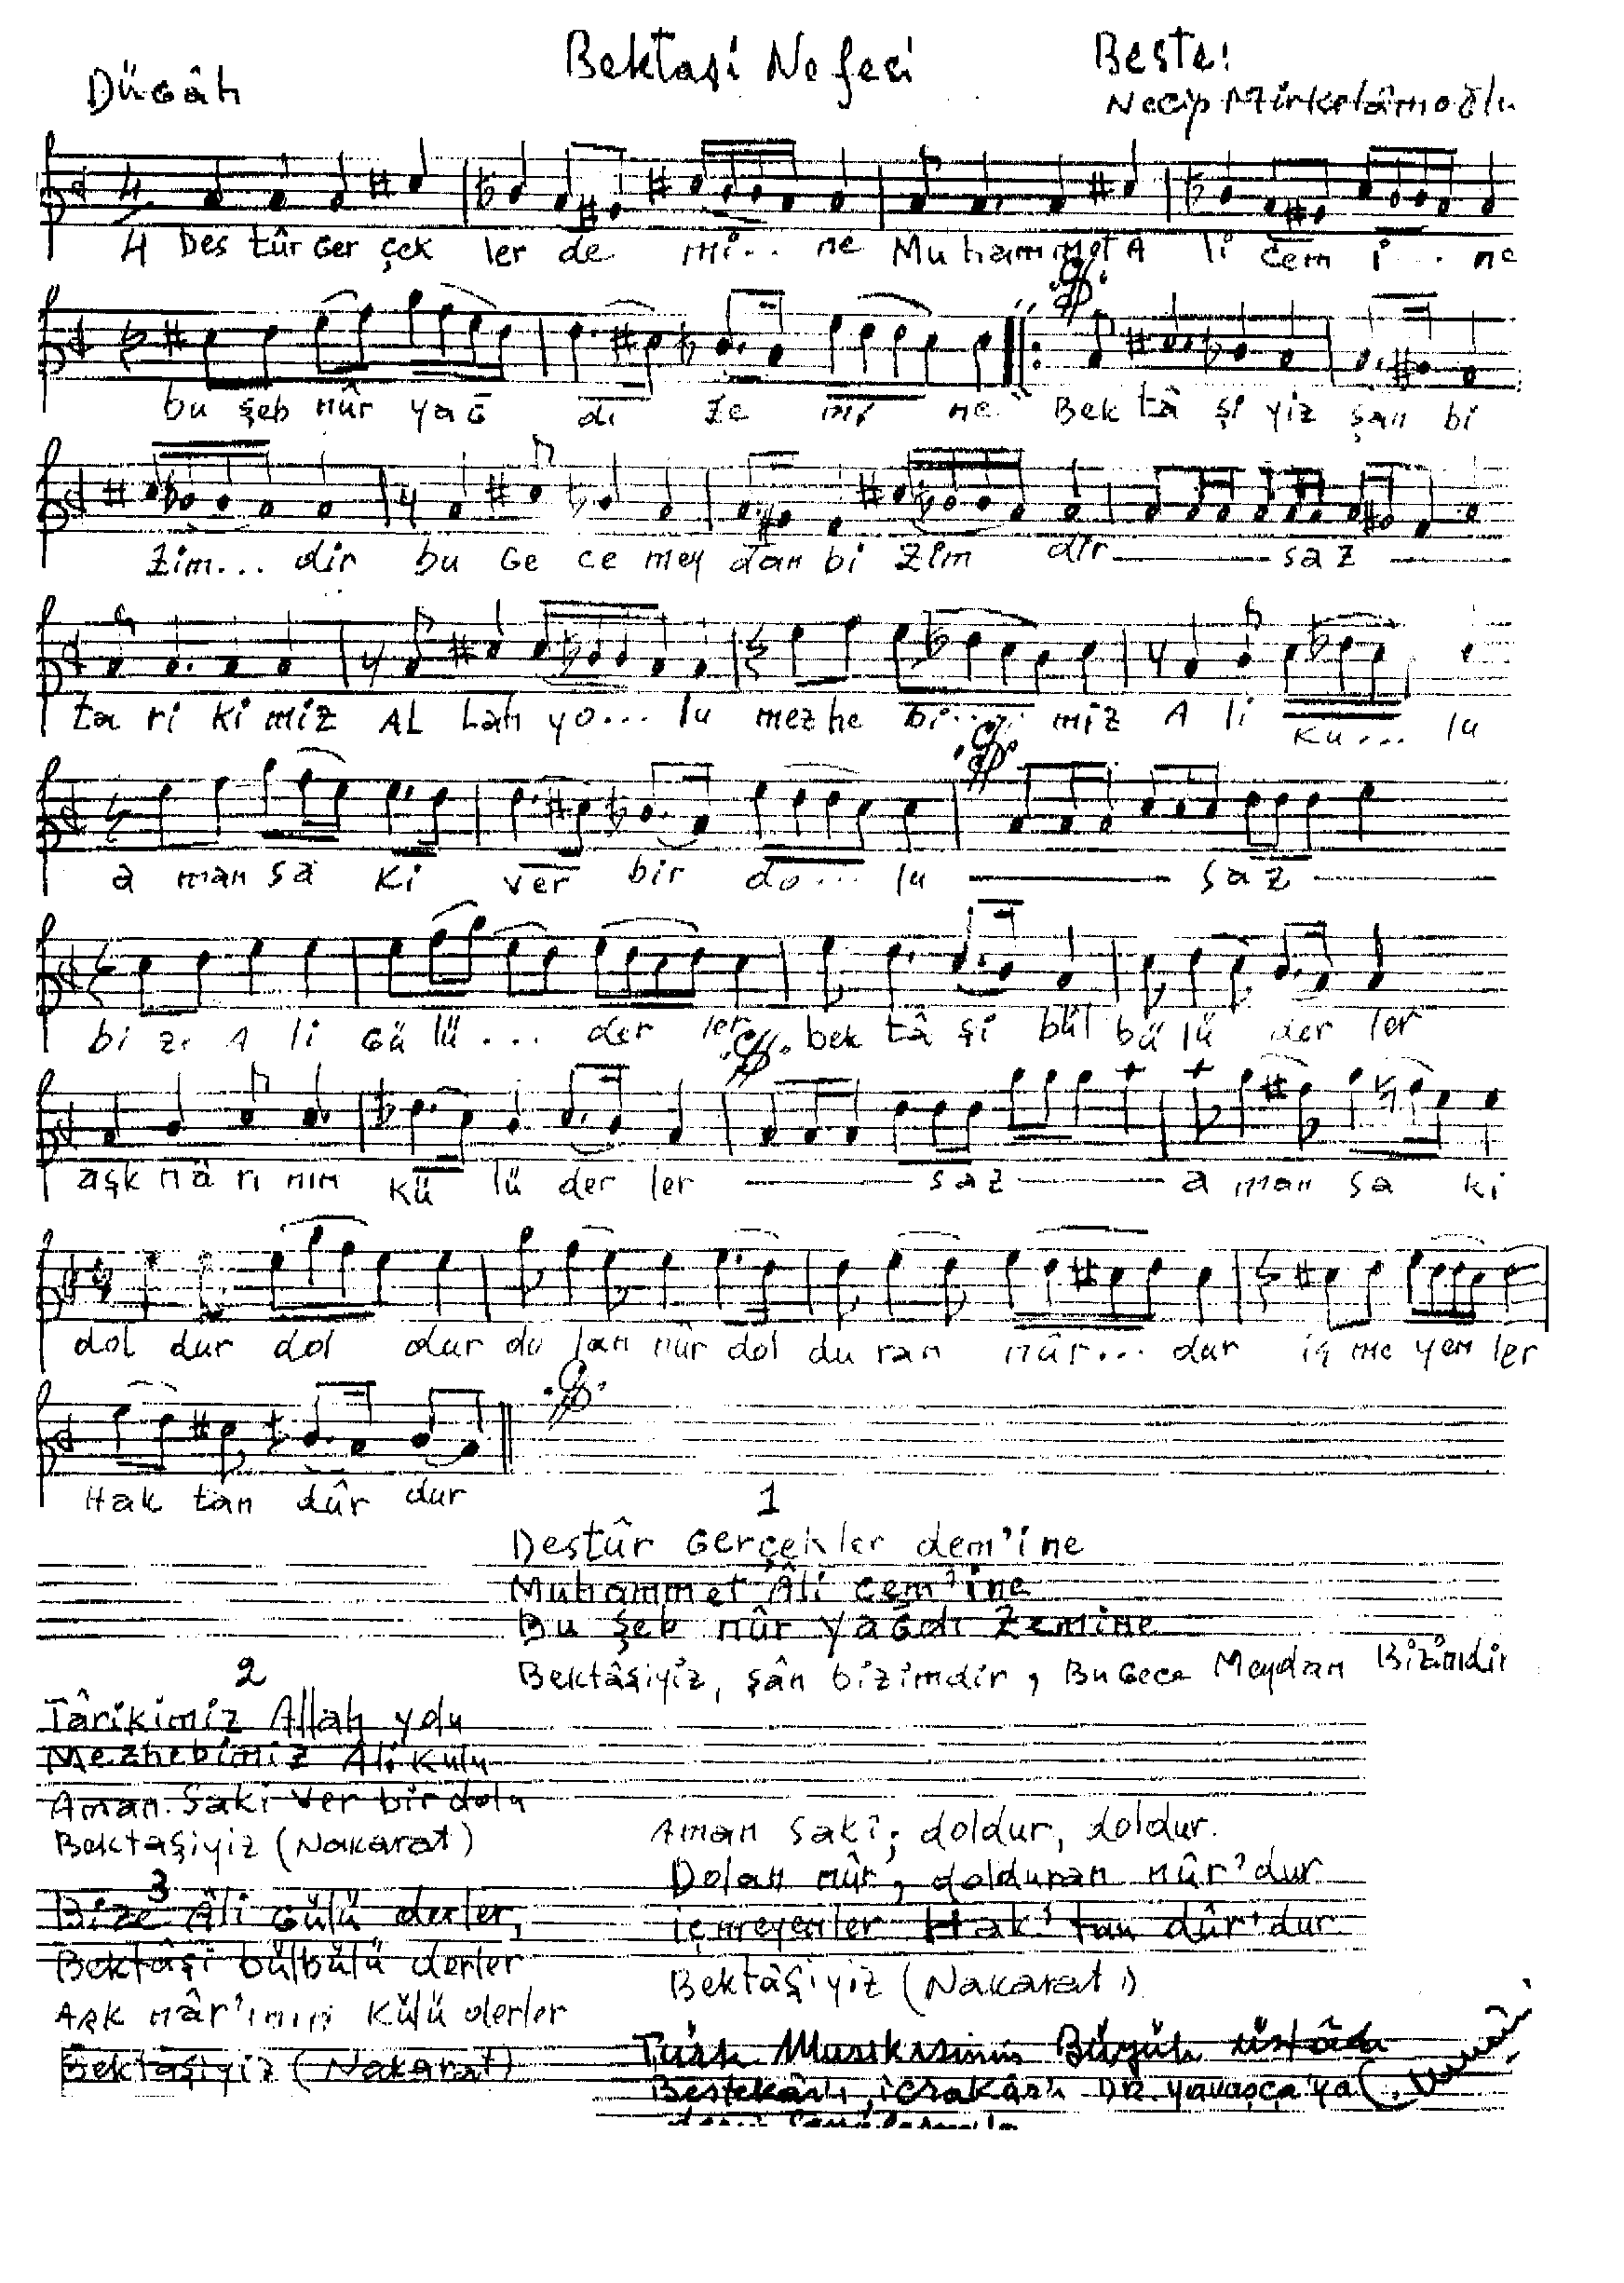 Bektaşi Nefesi
Beste:
Dügâh
Necip Mirkelâmoğlu
4 Des tûr Ger çek ler de mi... ne Mu ham met A li cem i... ne
4
bu şeb nûr yağ dı ze mi ne Bek tâ şi yiz şan bi
zim... dir bu Ge ce mey dan bi zim dir saz
ta ri ki miz AL Lah yo... lu mez he bi... miz A li ku... lu
a man sa ki ver bir do... lu saz
bi ze A li Gü lü... der ler bek tâ şi bül bü lü der ler
aşk nâ rı nın kü lü der ler saz a man sa ki
dol dur dol dur do lan nûr dol du ran nûr... dur iç me yen ler
Hak tan dûr dur
1
Destûr Gerçekler dem'ine
Muhammet Âli cem'ine
Bu şek nûr yağdı zemine
Bektâşiyiz, şân bizimdir, Bu Gece Meydan Bizimdir
2
Târikimiz Allah yolu
Mezhebimiz Âli kulu
Aman Saki ver bir dolu
Bektaşiyiz (Nakarat)
3
Bize Âli Gülü derler,
Bektâşi bülbülü derler
Aşk nâr'ının külü derler
Bektâşiyiz (Nakarat)
Aman saki; doldur, doldur.
Dolan nûr, dolduran nûr'dur
içmeyenler Hak'tan dûr'dur
Bektâşiyiz (Nakarat)
Türk Musıkisinin Büyük üstâdı
Bestekârı, icrakârı DR. yavaşça'ya